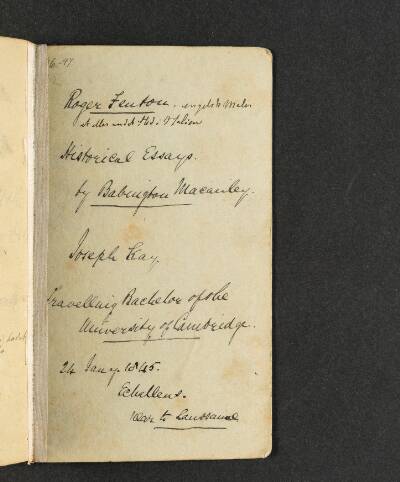 6-97
Roger Fenton.
Historical Essays.
by Babington Macauley.
Joseph Kay.
Travelling Bachelor of the
University of Cambridge.
24 Jany 1845.
Echellens.
Near to Lausanne